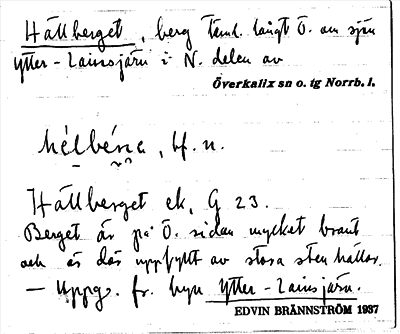 Hällberget, berg teml. långt Ö. om sjön
Ytter-Lainsjärv i N. delen av
Överkalix sn o. tg Norrb. l.
hélbéṛa, bf. n.
Hällberget ek. G 23.
Berget är på Ö. sidan mycket brant
och är där uppfyllt av stora stenhällar.
— Uppg. fr. byn Ytter-Lainsjärv.
EDVIN BRÄNNSTRÖM 1937